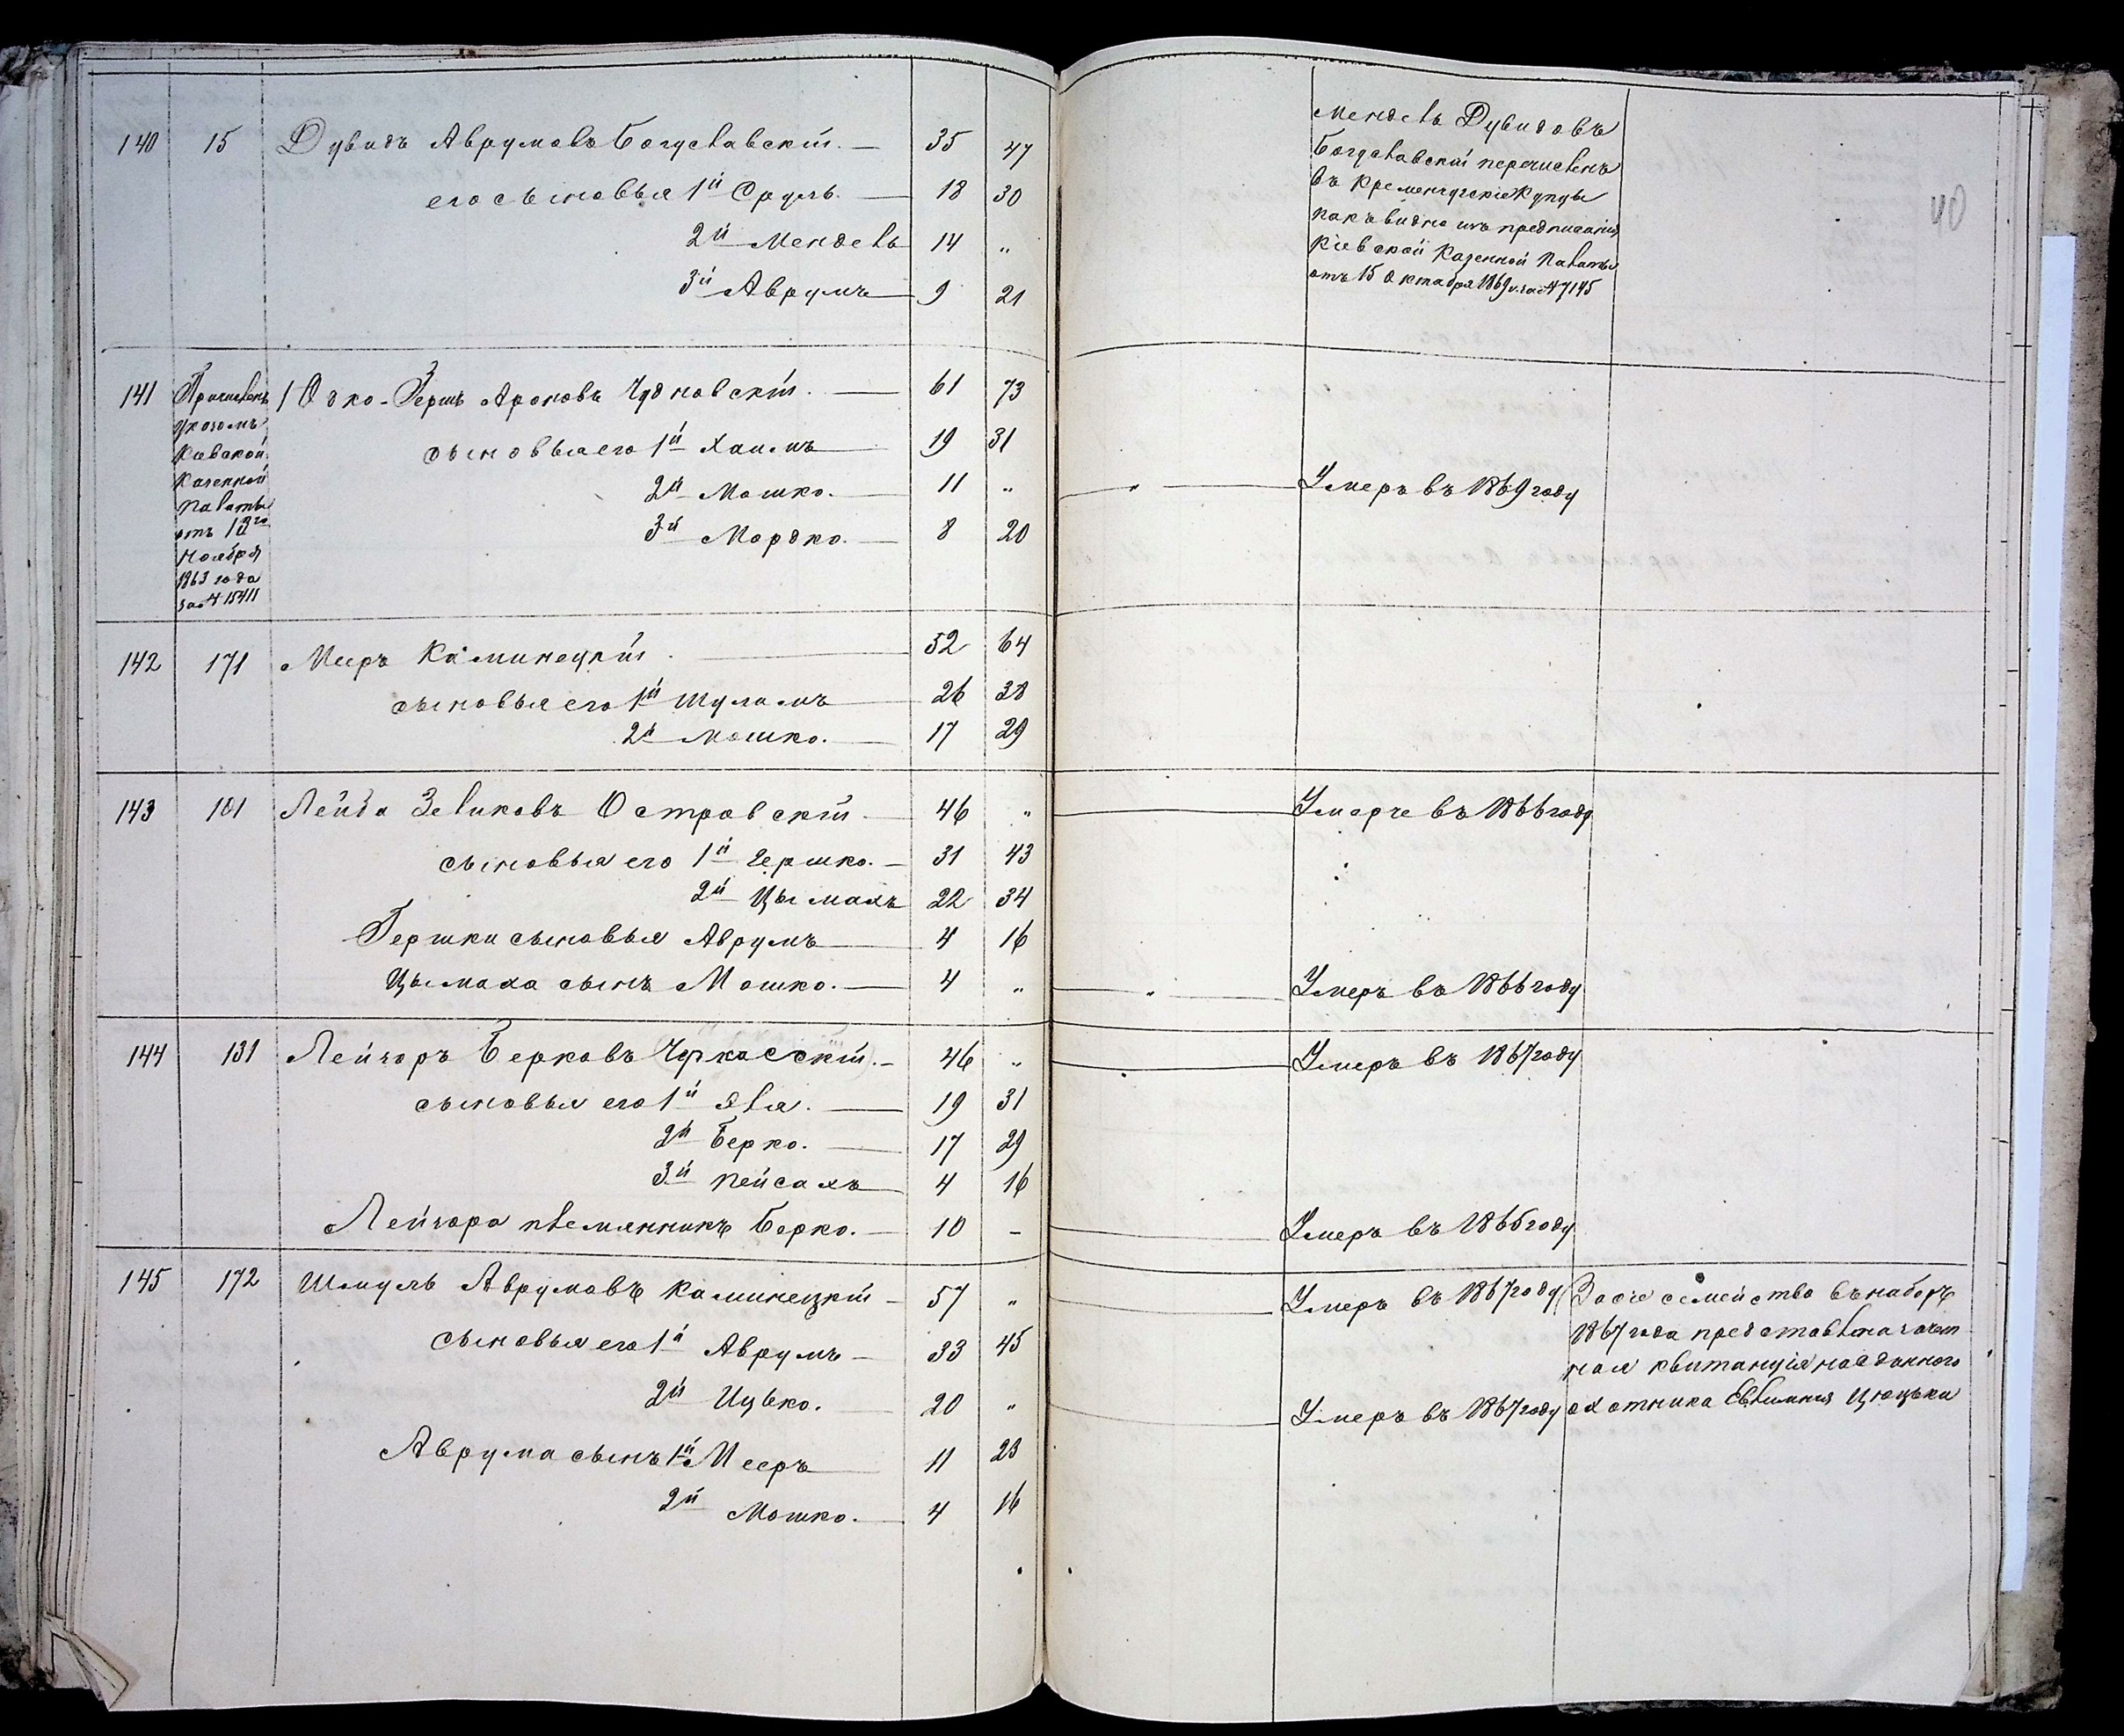 140 15 Дувидъ Аврумовъ Богуславскій. — 35 47
его сыновья 1й Сруль. — 18 30
2й Мендель 14 "
3й Аврумъ — 9 21
Мендель Дувидовъ
Богуславскій перечисленъ
въ Кременчугскіе Купцы
какъ видно изъ предписанія
Кіевской Казенной Палаты
отъ 15 Октября 1869 г. за № 7145
40
141 Причисленъ
указомъ
Кіевской
Казенной
Палаты
отъ 13го
Ноября
1863 года
за № 15411
Герш Ароновъ Чудновскій. — 61 73
сыновья его 1й Хаимъ — 19 31
2й Мошко. — 11 " — " — Умеръ въ 1869 году
3й Мордко. — 8 20
142 171 Мееръ Каминецкій. — 52 64
сыновья его 1й Шулимъ — 26 38
2й Мошко. — 17 29
143 101 Лейба Зеликовъ Островскій — 46 " — Умерче въ 1866 году
сыновья его 1й Гершко. — 31 43
2й Цымахъ 22 34
Гершки сыновья Аврумъ — 4 16
Цымаха сынъ Мошко. — 4 " — " — Умеръ въ 1866 году
144 131 Лейзоръ Берковъ Черкасскій. — 46 " — Умеръ въ 1867 году
сыновья его 1й Эля. — 19 31
2й Берко. — 17 29
3й Пейсахъ 4 16
Лейзора племянникъ Берко. — 10 — — Умеръ въ 1865 году
145 172 Шмуль Аврумовъ Каминецкій — 57 " — Умеръ въ 1867 году
сыновья его 1й Аврумъ — 33 45
2й Ицько. — 20 " — Умеръ въ 1867 году
Аврума сынъ 1й Мееръ — 11 23
2й Мошко. — 4 16
За сіе семейство въ наборъ
1867 года представлена зачет
ная квитанція на отданного
охотника Евтимія